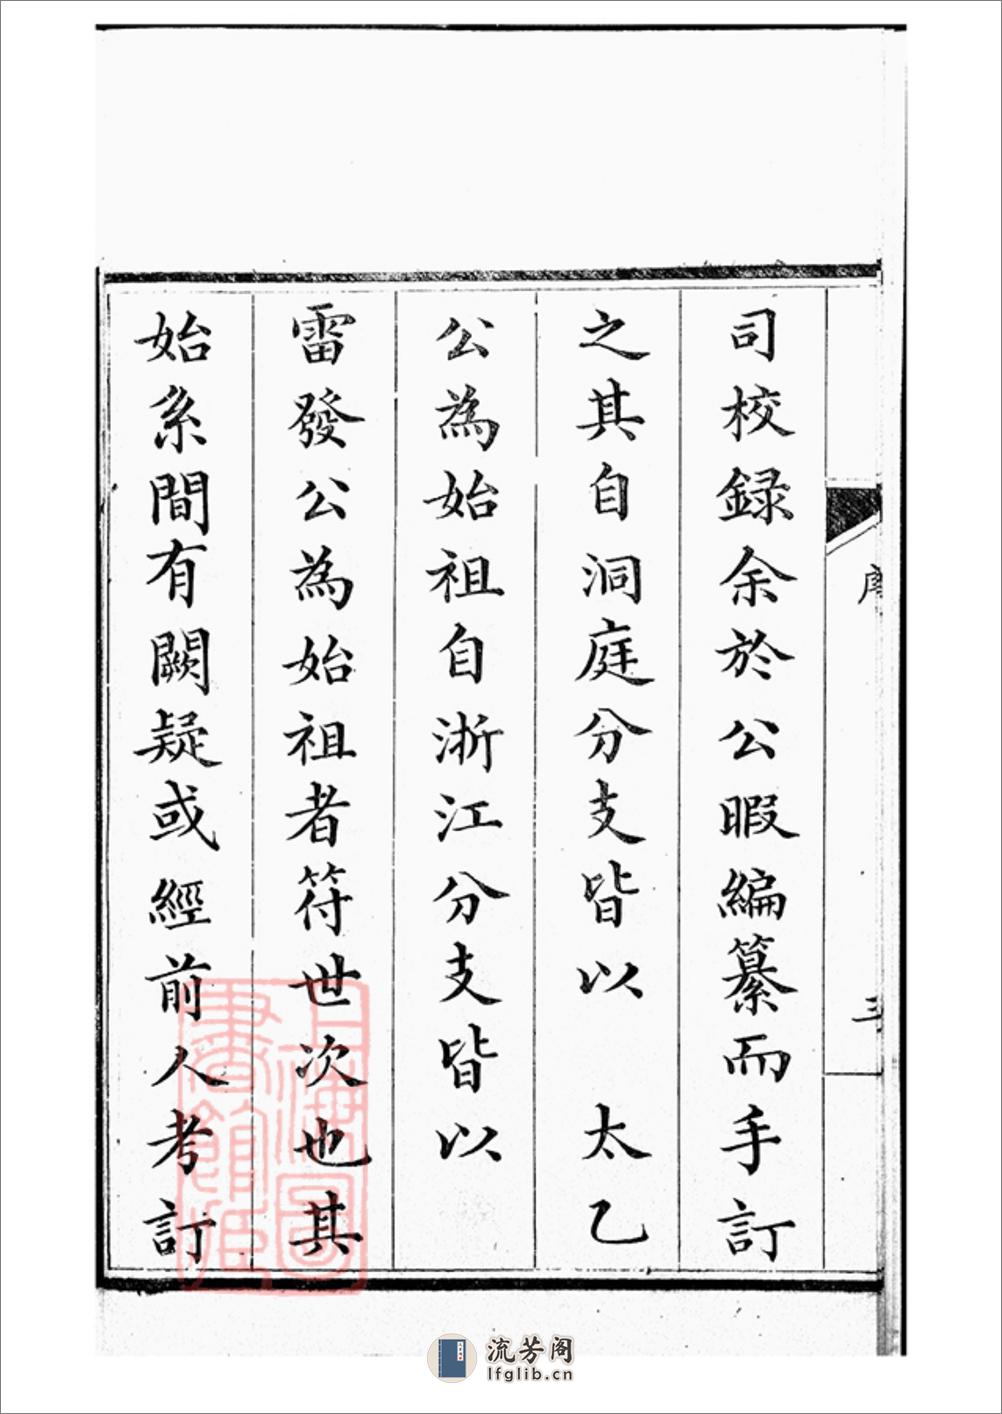 司校録余於公暇編纂而手訂
之其自洞庭分支皆以　太乙
公為始祖自浙江分支皆以
雷發公為始祖者符世次也其
始系間有闕疑或經前人考訂
序
三
上海圖
書館藏
流芳阁
lfglib.cn